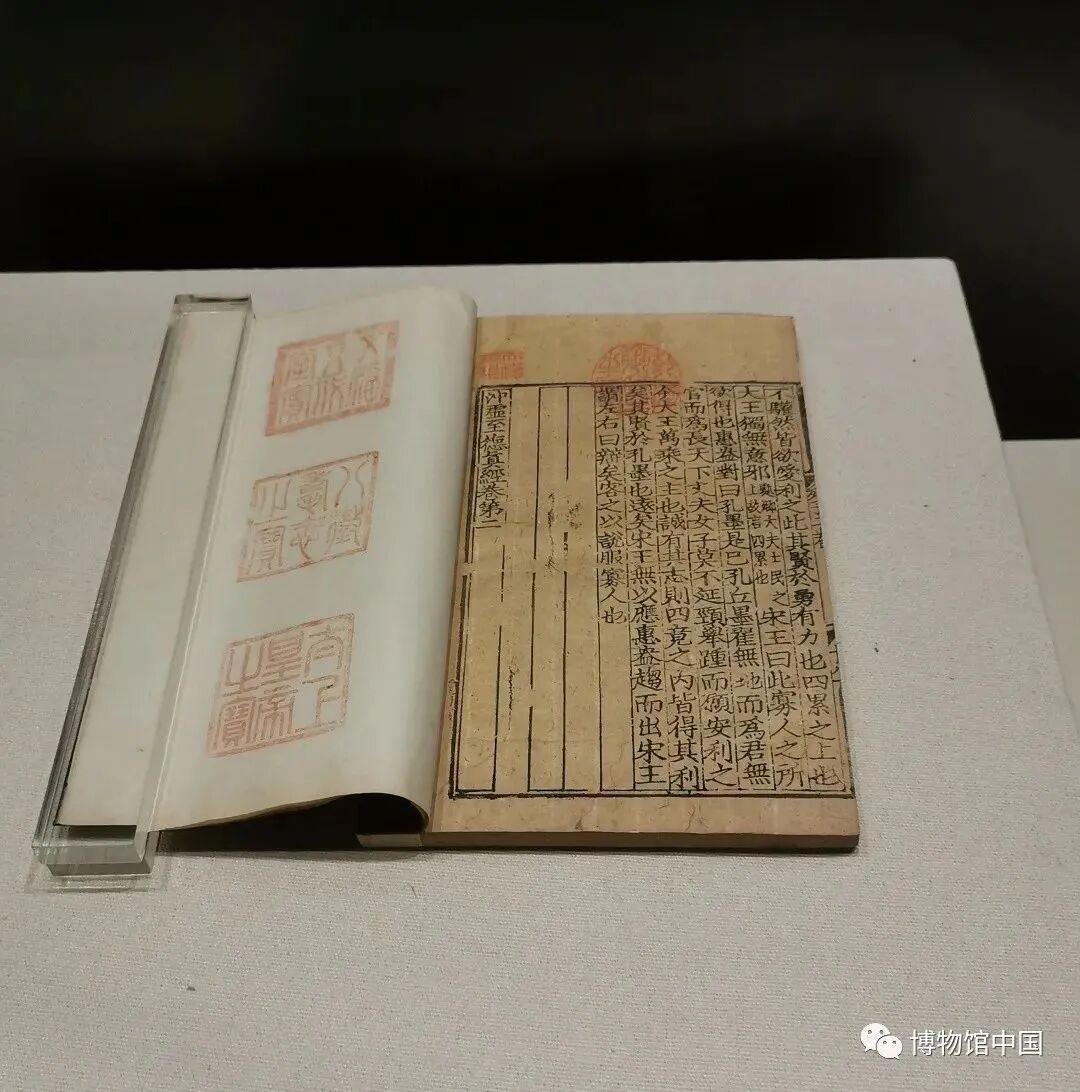 不驩然皆欲愛利之此其賢於勇有力也四累之上也
大王獨無意邪處卿大夫士民之上故言四累也宋王曰此寡人之所
欲得也惠盎對曰孔墨是已孔丘墨翟無地而爲君無
官而爲長天下丈夫女子莫不延頸舉踵而願安利之
今大王萬乘之主也誠有其志則四竟之内皆得其利
矣其賢於孔墨也遠矣宋王無以應惠盎趨而出宋王
謂左右曰辯矣客之以說服寡人也
沖虛至德真經卷第二
五福五代堂寶
八徵耄念之寶
太上皇帝之寶
博物馆中国